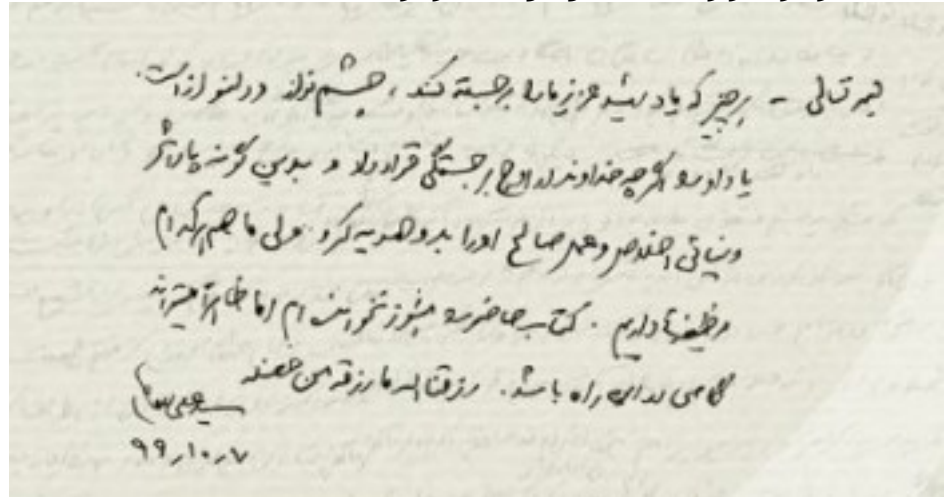 بسمه تعالی - هر چیز که یاد شهید عزیز ما را برجسته کند، چشم‌نواز و دلنواز است.
یاد او را اگرچه خداوند در اوج برجستگی قرار داد و بدین گونه پاداش
دنیائی اخلاص و عمل صالح او را بدو هدیه کرد ولی ما هم هر کدام
وظیفه‌ای داریم. کتاب حاضر را هنوز نخوانده‌ام اما ظاهراً میتواند
گامی در این راه باشد. رزقنا الله ما رزقه من فضله
سیدعلی خامنه‌ای
۹۹٫۱۰٫۷